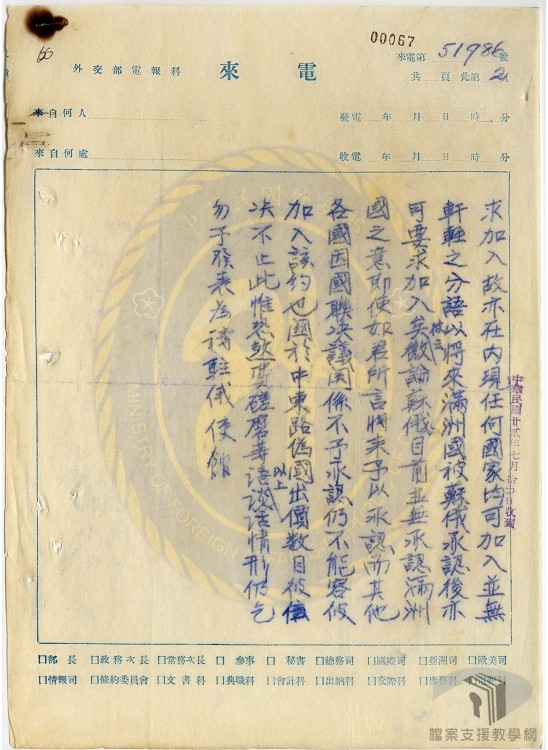 00067
60
外交部電報科
來電
來電第51986號
共 頁此第2頁
來自何人
發電 年 月 日 時 分
來自何處
收電 年 月 日 時 分
求加入故亦在內現任何國家均可加入並無
軒輊之分語以將來滿洲國被蘇俄承認後亦
可要求加入矣職云徵論蘇俄目前並無承認滿洲
國之意即使如君所言將來予以承認而其他
各國因國聯決議関係不予承認仍不能容彼
加入該約也關於中東路偽國出價數目彼信
決不止此惟恐熬費磋磨等語以上談話情形仍乞
勿予發表為禱駐俄使館
中華民國廿貳年七月
□部長 □政務次長 □常務次長 □參事 □秘書 □總務司 □國際司 □亞洲司 □歐美司
□情報司 □條約委員會 □文書科 □典職科 □會計科 □出納科 □交際科 □庶務科
檔案支援教學網